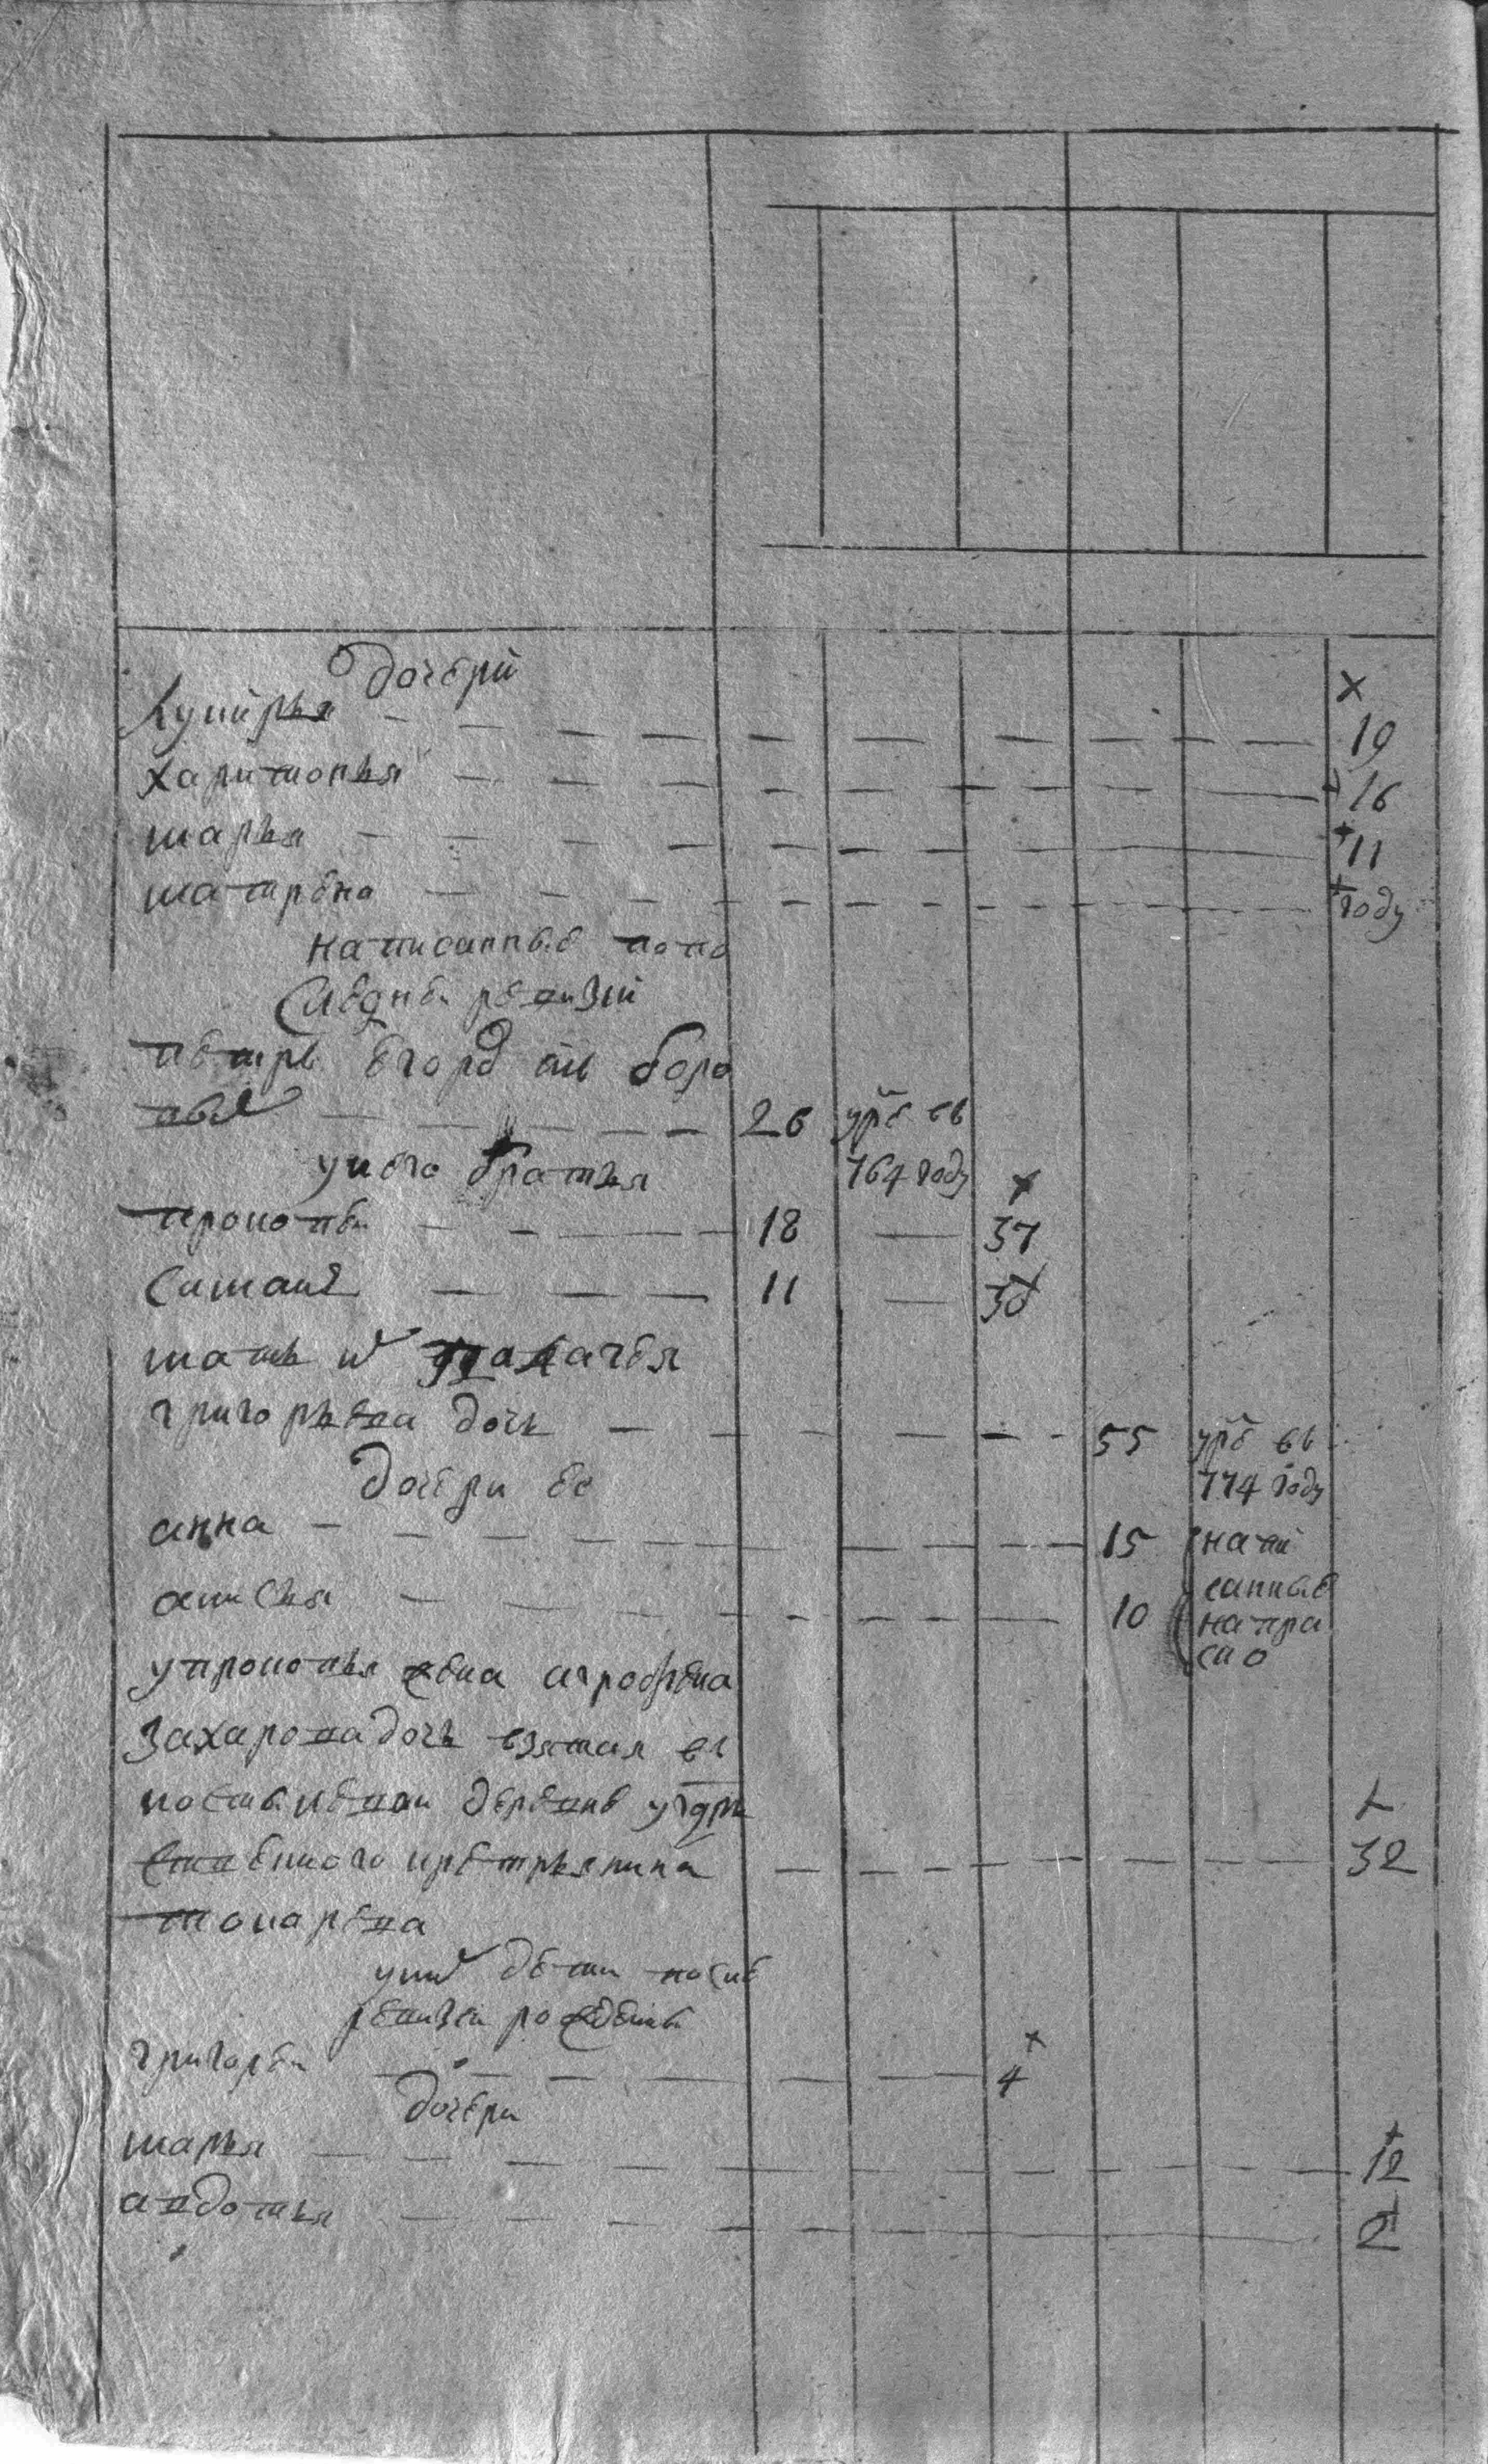 дочери
Лукирья — 19
харитонья — 16
марья — 11
матрена — году
написанные попо
следней ревизии
петръ егоровъ боро
вых — 26 умре въ
764 году
у него братья
прокопей — 18 — 37
симанъ — 11 — 30
мать их
григорьева дочь — 55 умре въ
774 году
дочери ее
анна — 15 напи
анисья — 10 санные
напра
сно
у прокопья жена агрофена
захарова дочь взятая въ
деревне у гдрь
ственного крестьянина — 32
токарева
у них дети после
ревизии рожденны
григорей — 4
дочери
марья — 12
авдотья — 2